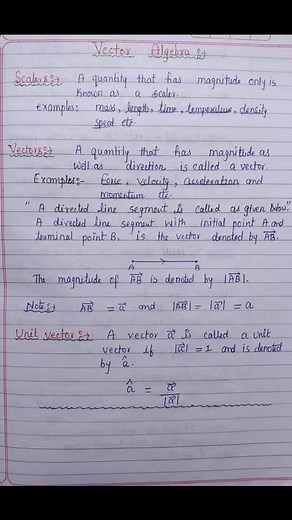 Vector Algebra :-
Scalers :- A quantity that has magnitude only is
known as a scaler.
examples: mass, length, time, temperature, density
speed etc.
Vectors :- A quantity that has magnitude as
well as direction is called a vector.
Examples:- Force, velocity, acceleration and
momentum etc.
" A directed line segment is called as given below."
A divected line segment with initial point A and
terminal point B, is the vector denoted by A⃗B⃗.
A B
The magnitude of A⃗B⃗ is denoted by |A⃗B⃗|.
Note :- A⃗B⃗ = a⃗ and |A⃗B⃗| = |a⃗| = a
Unit vector :- A vector a⃗ is called a unit
vector if |a⃗| = 1 and is denoted
by â.
â = a⃗ / |a⃗|